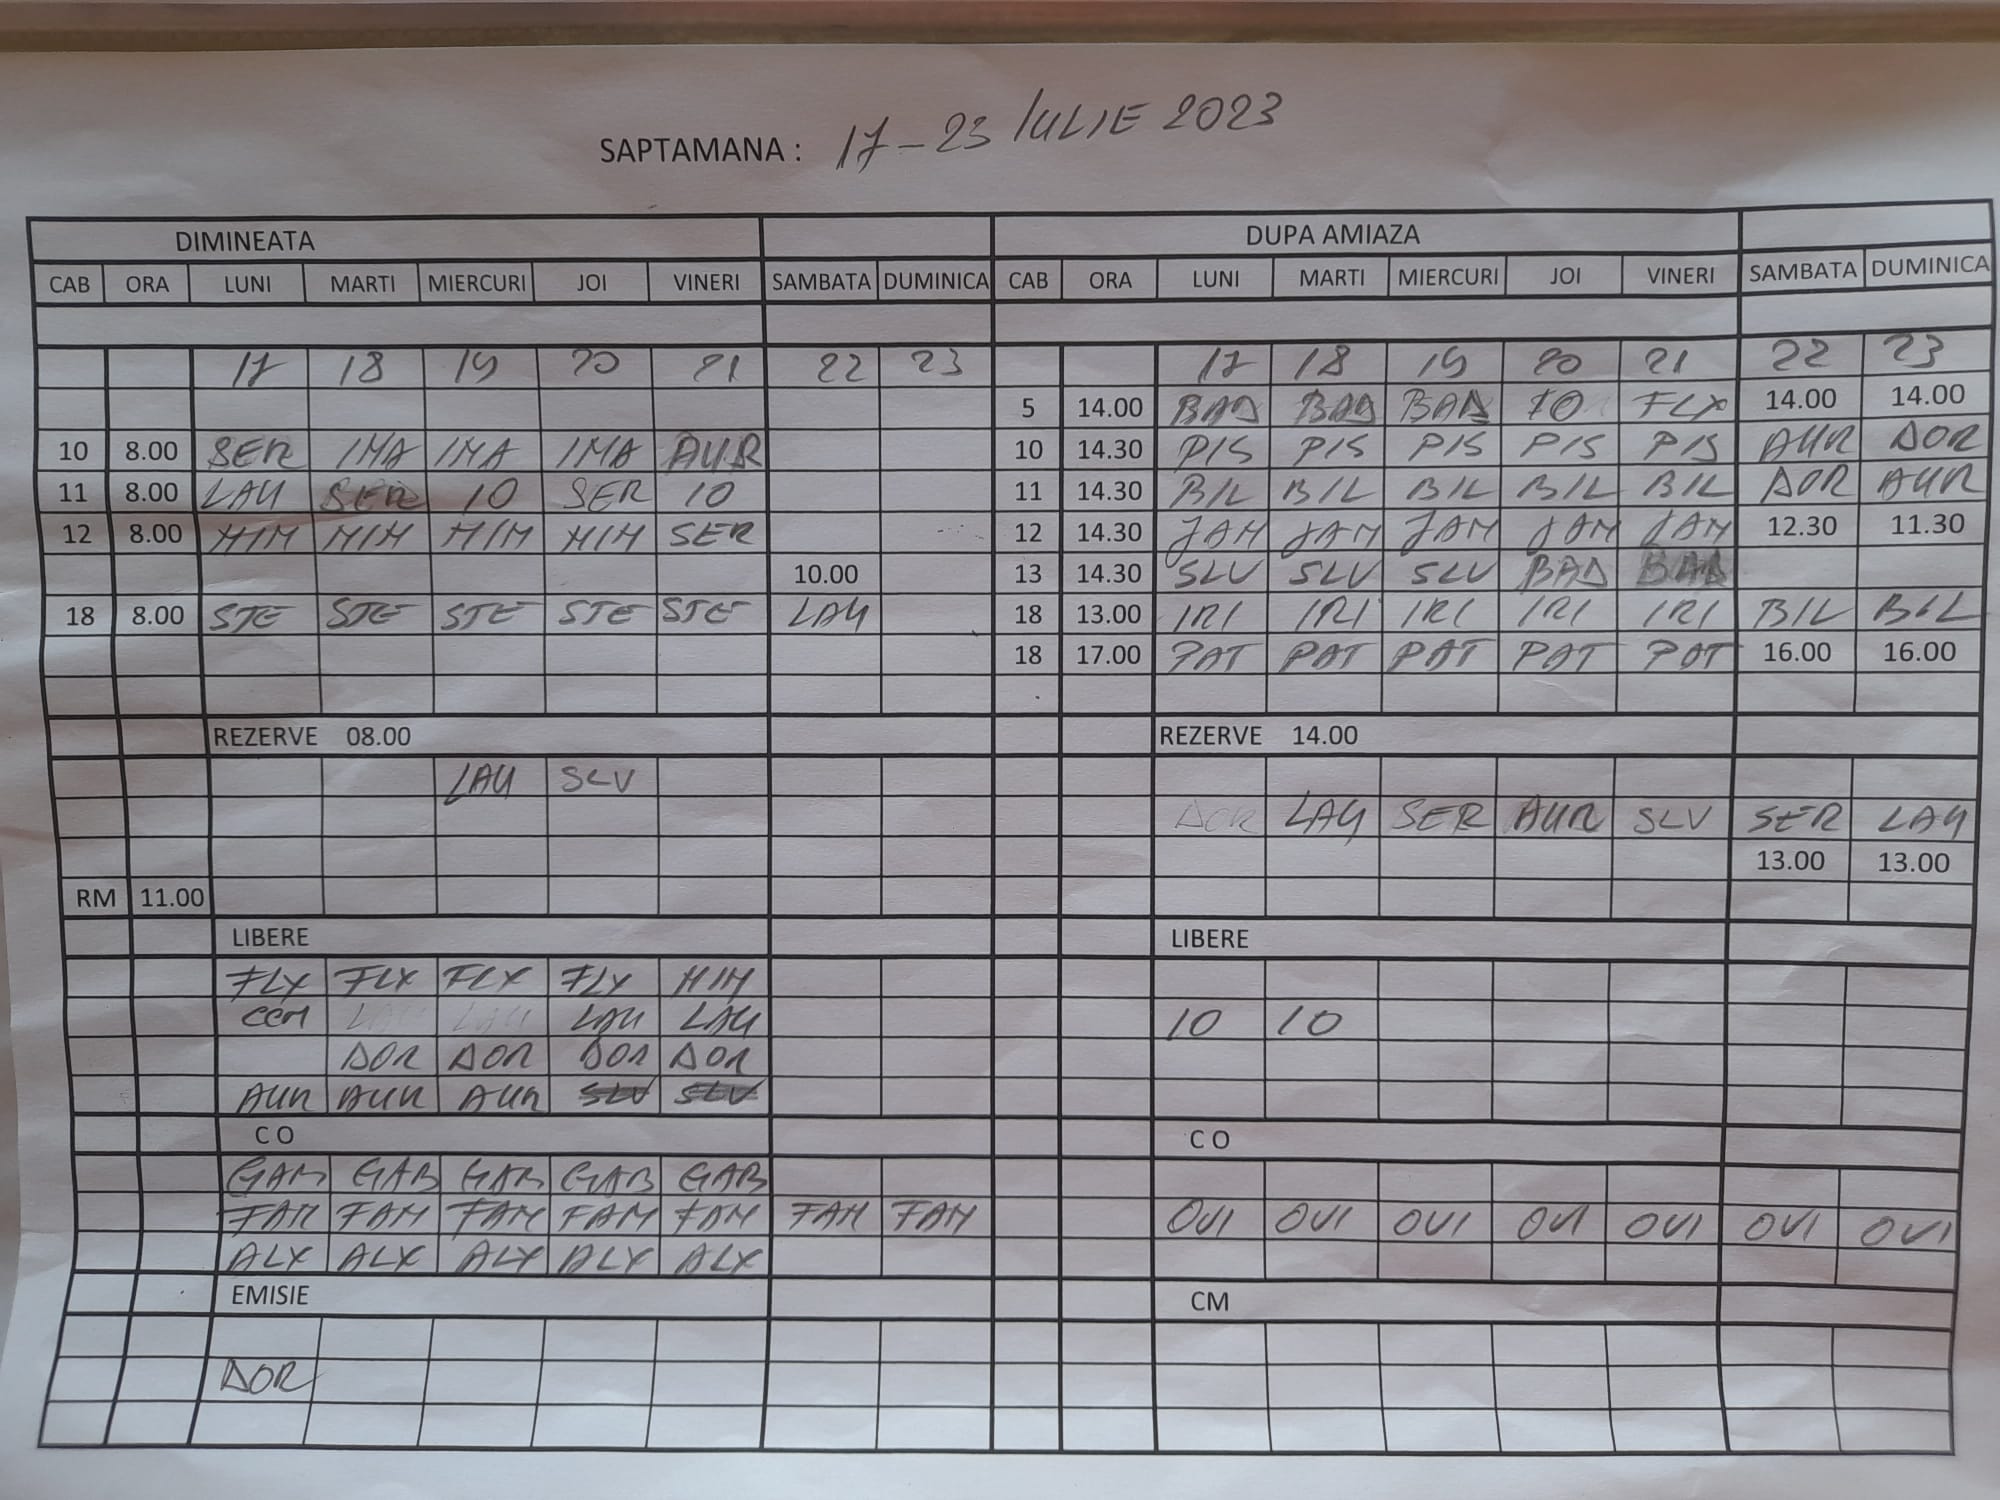 SAPTAMANA : 17-23 IULIE 2023
DIMINEATA DUPA AMIAZA
CAB ORA LUNI MARTI MIERCURI JOI VINERI SAMBATA DUMINICA CAB ORA LUNI MARTI MIERCURI JOI VINERI SAMBATA DUMINICA
17 18 19 20 21 22 23 17 18 19 20 21 22 23
5 14.00 BAD BAD BAD IO FLX 14.00 14.00
10 8.00 SER IMA IMA IMA AUR 10 14.30 PIS PIS PIS PIS PIS AUR DOR
11 8.00 LAU SER IO SER IO 11 14.30 BIL BIL BIL BIL BIL DOR AUR
12 8.00 MIM MIM MIM MIM SER 12 14.30 JAM JAM JAM JAM JAM 12.30 11.30
10.00 13 14.30 SLV SLV SLV BAD BAD
18 8.00 STE STE STE STE STE LAU 18 13.00 IRI IRI IRI IRI IRI BIL BIL
18 17.00 PAT PAT PAT PAT PAT 16.00 16.00
REZERVE 08.00 REZERVE 14.00
LAU SLV
DOR LAU SER AUR SLV SER LAU
13.00 13.00
RM 11.00
LIBERE LIBERE
FLX FLX FLX FLX MIM
CCM LAU LAU LAU LAU IO IO
DOR DOR DOR DOR
AUR AUR AUR SLV SLV
C O C O
GAB GAB GAB GAB GAB
FAM FAM FAM FAM FAM FAM FAM OVI OVI OVI OVI OVI OVI OVI
ALX ALX ALX ALX ALX
EMISIE CM
DOR